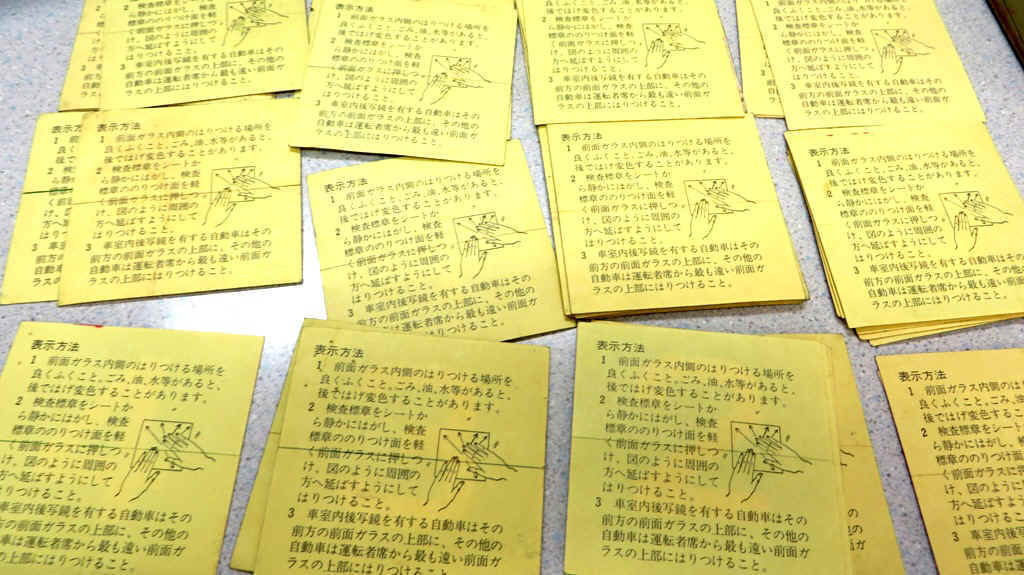 2 検査標章をシートか
ら静かにはがし、検査
標章ののりつけ面を軽
く前面ガラスに押しつ
け、図のように周囲の
方へ延ばすようにして
はりつけること。
3 車室内後写鏡を有する自動車はその
前方の前面ガラスの上部に、その他の
自動車は運転者席から最も遠い前面ガ
ラスの上部にはりつけること。
1 前面ガラス内側のはりつける場所を
良くふくこと。ごみ、油、水等があると、
後ではげ変色することがあります。
2 検査標章をシートか
ら静かにはがし、検査
標章ののりつけ面を軽
く前面ガラスに押しつ
け、図のように周囲の
方へ延ばすようにして
はりつけること。
3 車室内後写鏡を有する自動車はその
前方の前面ガラスの上部に、その他の
自動車は運転者席から最も遠い前面ガ
ラスの上部にはりつけること。
後ではげ変色することがあります。
2 検査標章をシートか
ら静かにはがし、検査
標章ののりつけ面を軽
く前面ガラスに押しつ
け、図のように周囲の
方へ延ばすようにして
はりつけること。
3 車室内後写鏡を有する自動車はその
前方の前面ガラスの上部に、その他の
自動車は運転者席から最も遠い前面ガ
ラスの上部にはりつけること。
良くふくこと。ごみ、油、水等があると、
後ではげ変色することがあります。
2 検査標章をシートか
ら静かにはがし、検査
標章ののりつけ面を軽
く前面ガラスに押しつ
け、図のように周囲の
方へ延ばすようにして
はりつけること。
3 車室内後写鏡を有する自動車はその
前方の前面ガラスの上部に、その他の
自動車は運転者席から最も遠い前面ガ
ラスの上部にはりつけること。
表示方
1 前
良くふ
後では
2 検
ら静か
標章の
く前面
け、図
方へ延
はりつ
3 車室
前方の
自動車
ラスの
表示方法
1 前面ガラス内側のはりつける場所を
良くふくこと。ごみ、油、水等があると、
後ではげ変色することがあります。
2 検査標章をシートか
ら静かにはがし、検査
標章ののりつけ面を軽
く前面ガラスに押しつ
け、図のように周囲の
方へ延ばすようにして
はりつけること。
3 車室内後写鏡を有する自動車はその
前方の前面ガラスの上部に、その他の
自動車は運転者席から最も遠い前面ガ
ラスの上部にはりつけること。
表示方法
1 前面ガラス内側のはりつける場所を
良くふくこと。ごみ、油、水等があると、
後ではげ変色することがあります。
2 検査標章をシートか
ら静かにはがし、検査
標章ののりつけ面を軽
く前面ガラスに押しつ
け、図のように周囲の
方へ延ばすようにして
はりつけること。
3 車室内後写鏡を有する自動車はその
前方の前面ガラスの上部に、その他の
は運転者席から最も遠い前面ガ
にはりつけること。
表示方法
1 前面ガラス内側のはりつける場所を
良くふくこと。ごみ、油、水等があると、
後ではげ変色することがあります。
2 検査標章をシートか
ら静かにはがし、検査
標章ののりつけ面を軽
く前面ガラスに押しつ
け、図のように周囲の
方へ延ばすようにして
はりつけること。
3 車室内後写鏡を有する自動車はその
前方の前面ガラスの上部に、その他の
自動車は運転者席から最も遠い前面ガ
ラスの上部にはりつけること。
表示方法
1 前面ガラス内側のはりつける場所を
良くふくこと。ごみ、油、水等があると、
後ではげ変色することがあります。
2 検査標章をシートか
ら静かにはがし、検査
標章ののりつけ面を軽
く前面ガラスに押しつ
け、図のように周囲の
方へ延ばすようにして
はりつけること。
3 車室内後写鏡を有する自動車はその
前方の前面ガラスの上部に、その他の
自動車は運転者席から最も遠い前面ガ
ラスの上部にはりつけること。
表示方法
1 前面ガラス内側のはりつける場所を
良くふくこと。ごみ、油、水等があると、
後ではげ変色することがあります。
2 検査標章をシートか
ら静かにはがし、検査
標章ののりつけ面を軽
く前面ガラスに押しつ
け、図のように周囲の
方へ延ばすようにして
はりつけること。
3 車室内後写鏡を有する自動車はその
前方の前面ガラスの上部に、その他の
自動車は運転者席から最も遠い前面ガ
ラスの上部にはりつけること。
表示方法
1 前面ガラス内側のはりつける場所を
良くふくこと。ごみ、油、水等があると、
後ではげ変色することがあります。
2 検査標章をシートか
ら静かにはがし、検査
標章ののりつけ面を軽
く前面ガラスに押しつ
け、図のように周囲の
方へ延ばすようにして
はりつけること。
3 車室内後写鏡を有する自動車はその
前方の前面ガラスの上部に、その他の
自動車は運転者席から最も遠い前面ガ
ラスの上部にはりつけること。
表示方法
1 前面ガラス内側のはりつける場所を
良くふくこと。ごみ、油、水等があると、
後ではげ変色することがあります。
2 検査標章をシートか
ら静かにはがし、検査
標章ののりつけ面を軽
く前面ガラスに押しつ
け、図のように周囲の
方へ延ばすようにして
はりつけること。
3 車室内後写鏡を有する自動車はその
前方の前面ガラスの上部に、その他の
自動車は運転者席から最も遠い前面ガ
ラスの上部にはりつけること。
表示方法
1 前面ガラス内側の
良くふくこと。ごみ、
後ではげ変色するこ
2 検査標章をシー
ら静かにはがし、
標章ののりつけ面
く前面ガラスに
け、図のように
方へ延ばすよう
はりつけること
3 車室内後写
前方の前面ガ
自動車は運